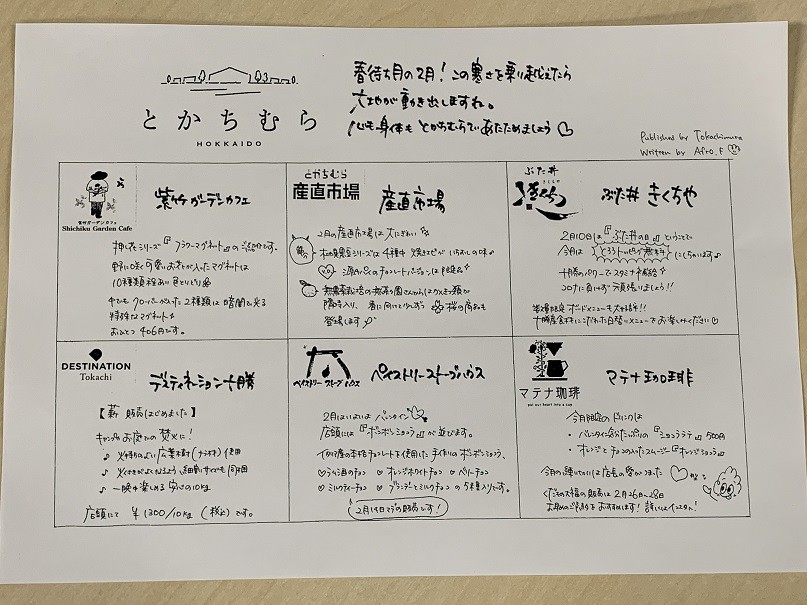 春待ち月の2月！この寒さを乗り越えたら
大地が動き出しますね。
心も身体も とかちむらであたためましょう♡
とかちむら
HOKKAIDO
Published by Tokachimura
Written by Afro.F
紫竹ガーデンカフェ
Shichiku Garden Cafe
紫竹ガーデンカフェ
押し花シリーズ『フラワーマグネット』のご紹介です。
野に咲く可愛いお花が入ったマグネットは
10種類程あり色とりどり
中でも クローバーが入った2種類は暗闇で光る
特殊なマグネット
おひとつ 406円です。
とかちむら
産直市場
産直市場
2月の産直市場は大にぎわい
シリーズは4種中 焼きエビが いちおしの味♪
のチョコレートバージョンは
登場します
ぶた丼
きくちや
ぶた丼 きくちや
2月10日は『ぶた丼の日』ということで
今月は とろろトッピング無料 にしちゃいます♪
十勝のパワーでスタミナ補給
コロナに負けず 頑張りましょう!!
数量限定 ボードメニューも大好評!!
十勝産食材にこだわった日替いメニューを お楽しみください♡
DESTINATION
Tokachi
デスティネーション十勝
【薪 販売はじめました】
キャンプやお庭での 焚火に！
♪ 火持ちのよい広葉樹(ナラ材)使用
♪ 火付きがよくなるよう、細割りすぎも同梱
♪ 一晩中楽しめる 安心の10kg
店頭にて ¥1300/10kg (税込)です。
ペイストリー ストーブ ハウス
ペイストリーストーブハウス
2月はいよいよ バレンタイン♡
店頭には『ボンボンショコラ』が並びます。
産の本格チョコレートを使用した手作りのボンボンショコラ、
♡ラム酒のチョコ ♡オレンジホワイトチョコ ♡ベリーチョコ
♡ミルクティーチョコ ♡ブランデーとミルクチョコ の5種入りです。
2月14日までの販売です！
マテナ珈琲
put our heart into a cup
マテナ珈琲
今月限定の ドリンクは
・バレンタイン気分たっぷりの『ショコララテ』500円
・オレンジとチョコの入ったスムージー『オレンジショコラ』
今月の練りきりには店長の愛がつまった
くだもの大福の販売は 2月26日〜28日
お早めのご予約をおすすめします！詳しくはインスタへ！